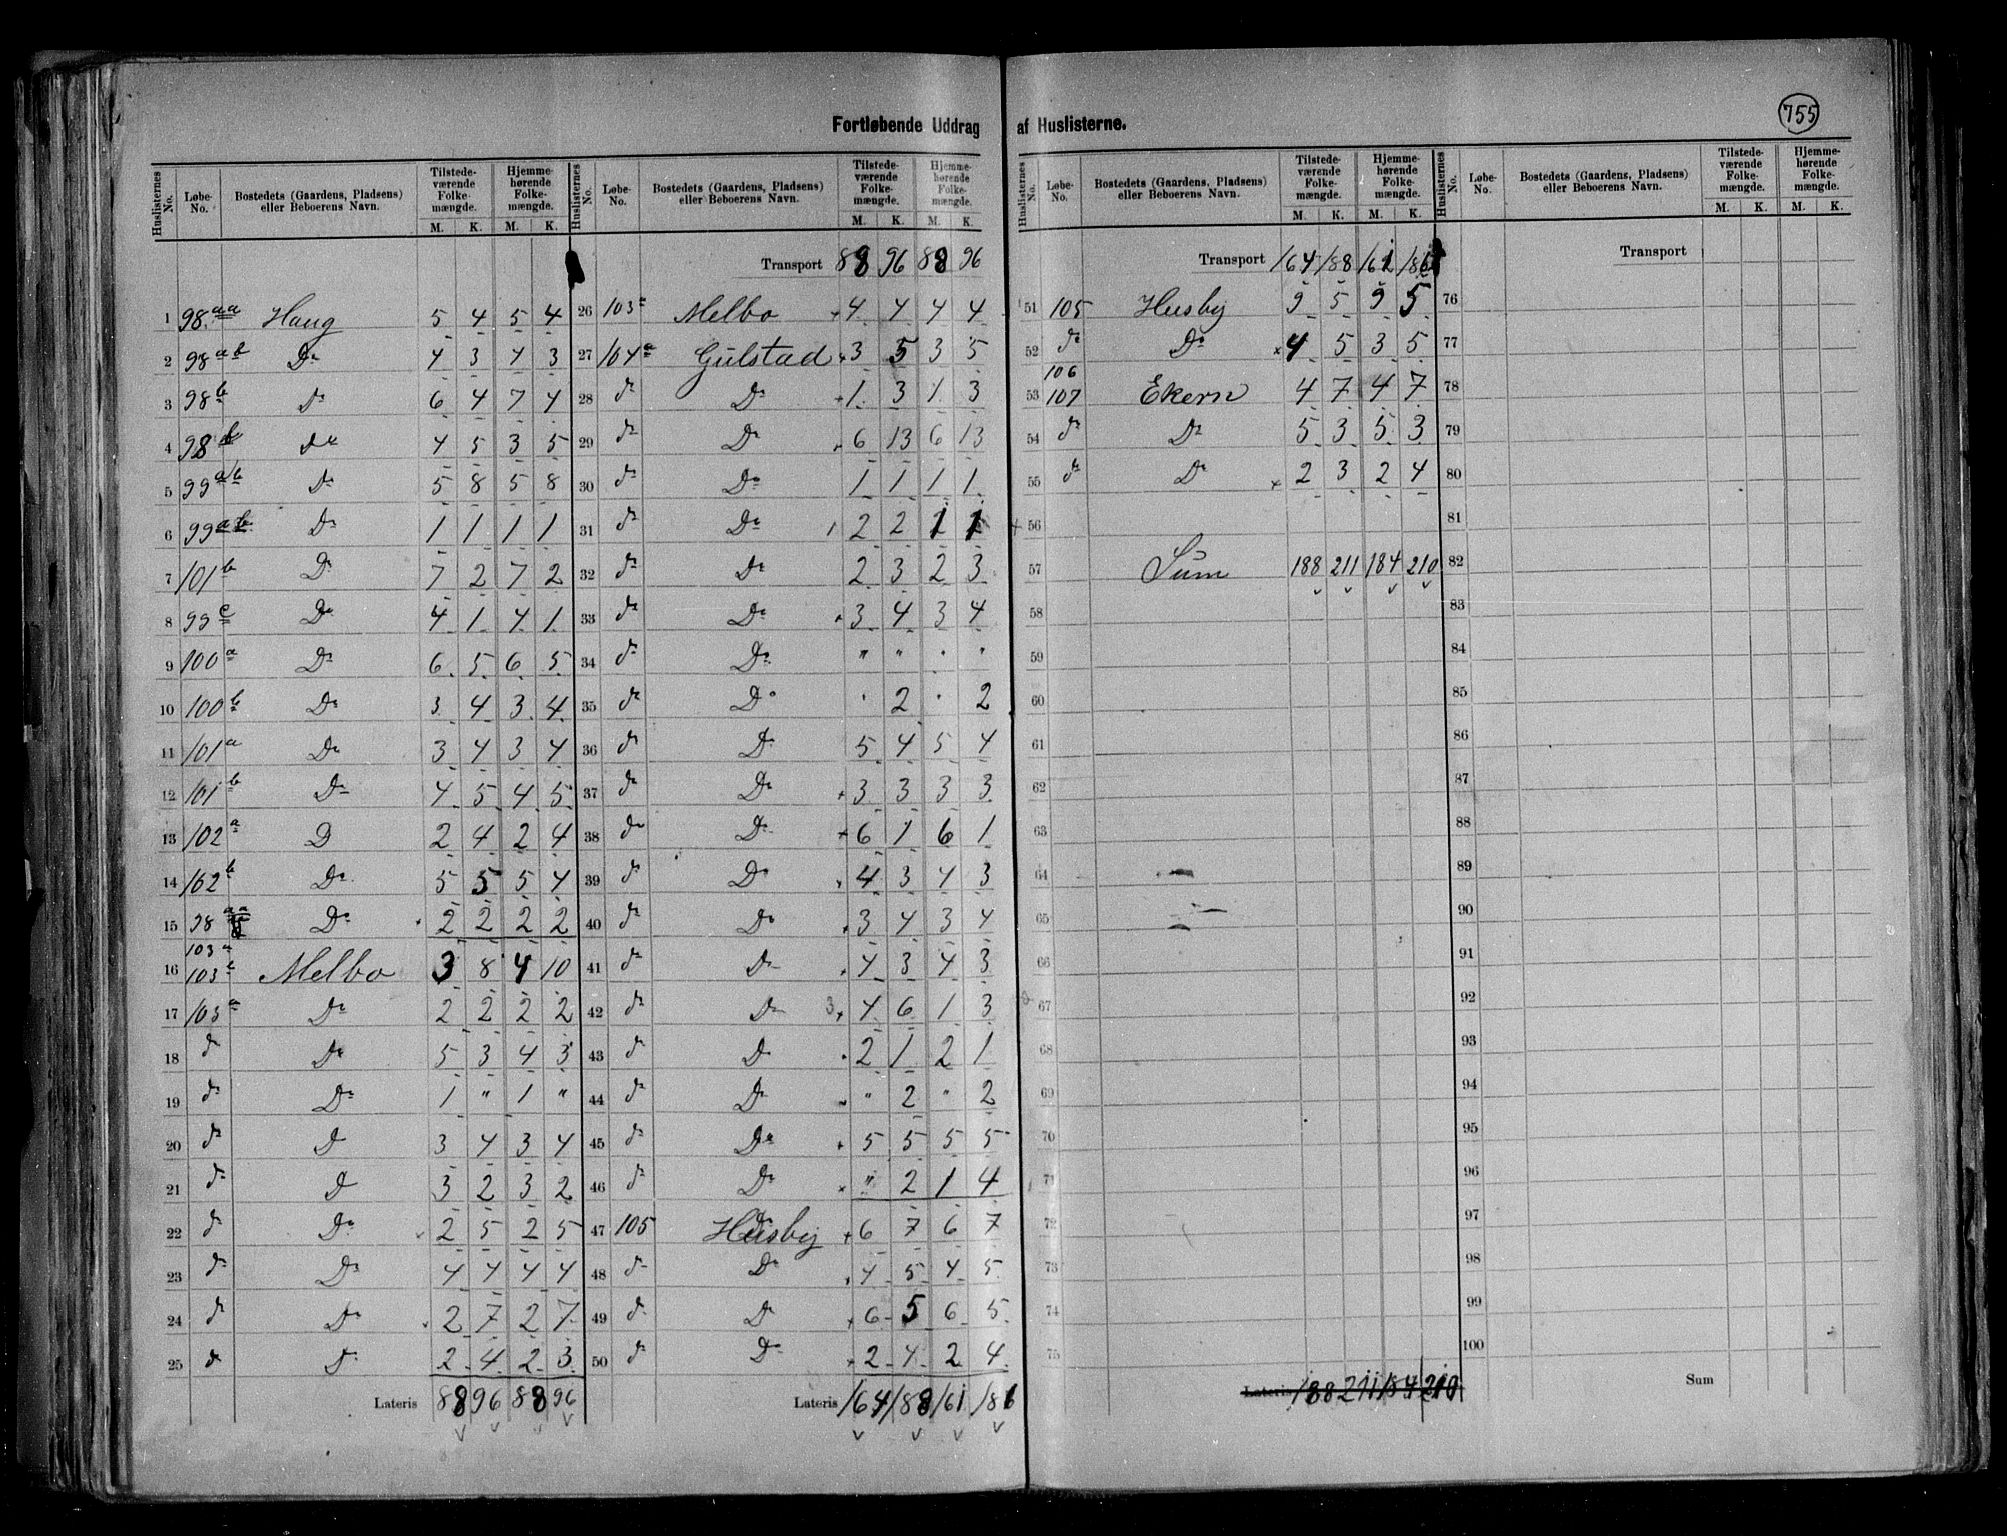 755
Fortløbende Uddrag af Huslisterne.
Huslisternes No. | Løbe-No. | Bostedets (Gaardens, Pladsens) eller Beboerens Navn. | Tilstede-værende Folke-mængde. M. K. | Hjemme-hørende Folke-mængde. M. K.
1 98 aa Haug 5 4 5 4
2 98 ab Do 4 3 4 3
3 98 b Do 6 4 7 4
4 98 b do 4 5 3 5
5 99 ab Do 5 8 5 8
6 99 ab Do 1 1 1 1
7 101 b Do 7 2 7 2
8 99 c Do 4 1 4 1
9 100 a Do 6 5 6 5
10 100 b Do 3 4 3 4
11 101 a Do 3 4 3 4
12 101 b Do 4 5 4 5
13 102 a D 2 4 2 4
14 102 b Do 5 5 5 4
15 98 aa Do 2 2 2 2
103 a
16 103 c Melbo 3 8 4 10
17 103 a Do 2 2 2 2
18 do Do 5 3 4 3
19 do Do 1 " 1 "
20 do D 3 4 3 4
21 do D 3 2 3 2
22 do Do 2 5 2 5
23 do Do 4 4 4 4
24 do Do 2 7 2 7
25 do Do 2 4 2 3
Lateris 88 96 88 96
Huslisternes No. | Løbe-No. | Bostedets (Gaardens, Pladsens) eller Beboerens Navn. | Tilstede-værende Folke-mængde. M. K. | Hjemme-hørende Folke-mængde. M. K.
Transport 88 96 88 96
26 103 c Melbo 4 4 4 4
27 104 a Gulstad 3 5 3 5
28 do Do 1 3 1 3
29 do Do 6 13 6 13
30 do Do 1 1 1 1
31 do Do 2 2 1 1
32 do Do 2 3 2 3
33 do Do 3 4 3 4
34 do Do " " " "
35 do Do " 2 " 2
36 do Do 5 4 5 4
37 do Do 3 3 3 3
38 do Do 6 1 6 1
39 do Do 4 3 4 3
40 do Do 3 4 3 4
41 do Do 4 3 4 3
42 do Do 3 4 6 1 3
43 do D 2 1 2 1
44 do Do " 2 " 2
45 do Do 5 5 5 5
46 do Do " 2 1 4
47 105 Husby 6 7 6 7
48 do Do 4 5 4 5
49 do D 6 5 6 5
50 do Do 2 4 2 4
Lateris 164 188 161 186
Huslisternes No. | Løbe-No. | Bostedets (Gaardens, Pladsens) eller Beboerens Navn. | Tilstede-værende Folke-mængde. M. K. | Hjemme-hørende Folke-mængde. M. K.
Transport 164 188 161 186
51 105 Husby 9 5 9 5
52 do Do 4 5 3 5
106
53 107 Ekern 4 7 4 7
54 do Do 5 3 5 3
55 do Do 2 3 2 4
56
57 Sum 188 211 184 210
58
59
60
61
62
63
64
65
66
67
68
69
70
71
72
73
74
75
Lateris 188 211 184 210
Huslisternes No. | Løbe-No. | Bostedets (Gaardens, Pladsens) eller Beboerens Navn. | Tilstede-værende Folke-mængde. M. K. | Hjemme-hørende Folke-mængde. M. K.
Transport
76
77
78
79
80
81
82
83
84
85
86
87
88
89
90
91
92
93
94
95
96
97
98
99
100
Sum